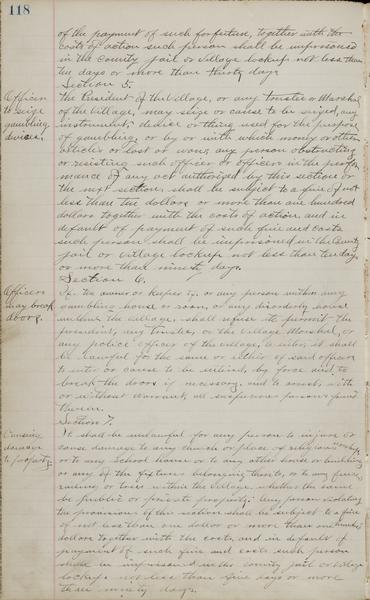 118
of the payment of such forfeiture, together with the
costs of action such person shall be imprisoned
in the County jail or Village lockup not less than
ten days or more than thirty days
Section 5.
Officers to seize gambling devices.
The President of the Village, or any trustee or Marshal
of the village, may seize or cause to be seized, any
instrument, device or thing used for the purpose
of gambling, or by or with which money or other
articles or lost or won; any person obstructing
or resisting such officer or officers in the perfor-
mance of any act authorized by this section or
the next section, shall be subject to a fine of not
less than ten dollars or more than one hundred
dollars together with the costs of action, and in
default of payment of such fine and costs
such person shall be imprisoned in the County
jail or village lockup not less than ten days
or more than ninety days.
Section 6.
Officers may break doors.
If the owner or keeper of, or any person within any
gambling house or room, or any disorderly house
within the village, shall refuse to permit the
president, any trustee, or the Village Marshal, or
any police officer of the village, to enter, it shall
be lawful for the same or either of said officers
to enter or cause to be entered, by force and to
break the doors if necessary, and to arrest, with
or without warrant, all suspicious persons found
therein.
Section 7.
Causing damage to property.
It shall be unlawful for any person to injure or
cause damage to any church or place of religious worship,
or to any School house or to any other house or building
or any of the fixtures belonging thereto, or to any fence,
railing or trees within the village, whether the same
be public or private property. Any person violating
the provisions of this section shall be subject to a fine
of not less than one dollar or more than one hundred
dollars together with the costs, and in default of
payment of such fine and costs such person
shall be imprisoned in the county jail or village
lockup not less than five days or more
than ninety days.